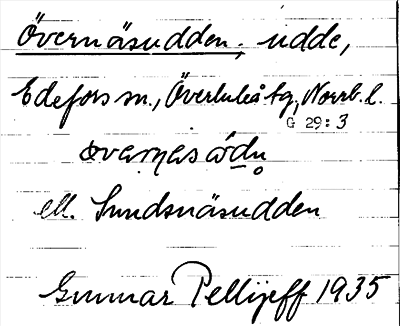 Övernäsudden, udde,
Edefors sn., Överluleå tg, Norrb. l.
G 29:3
ell. Sundsnäsudden
Gunnar Pellijeff 1935